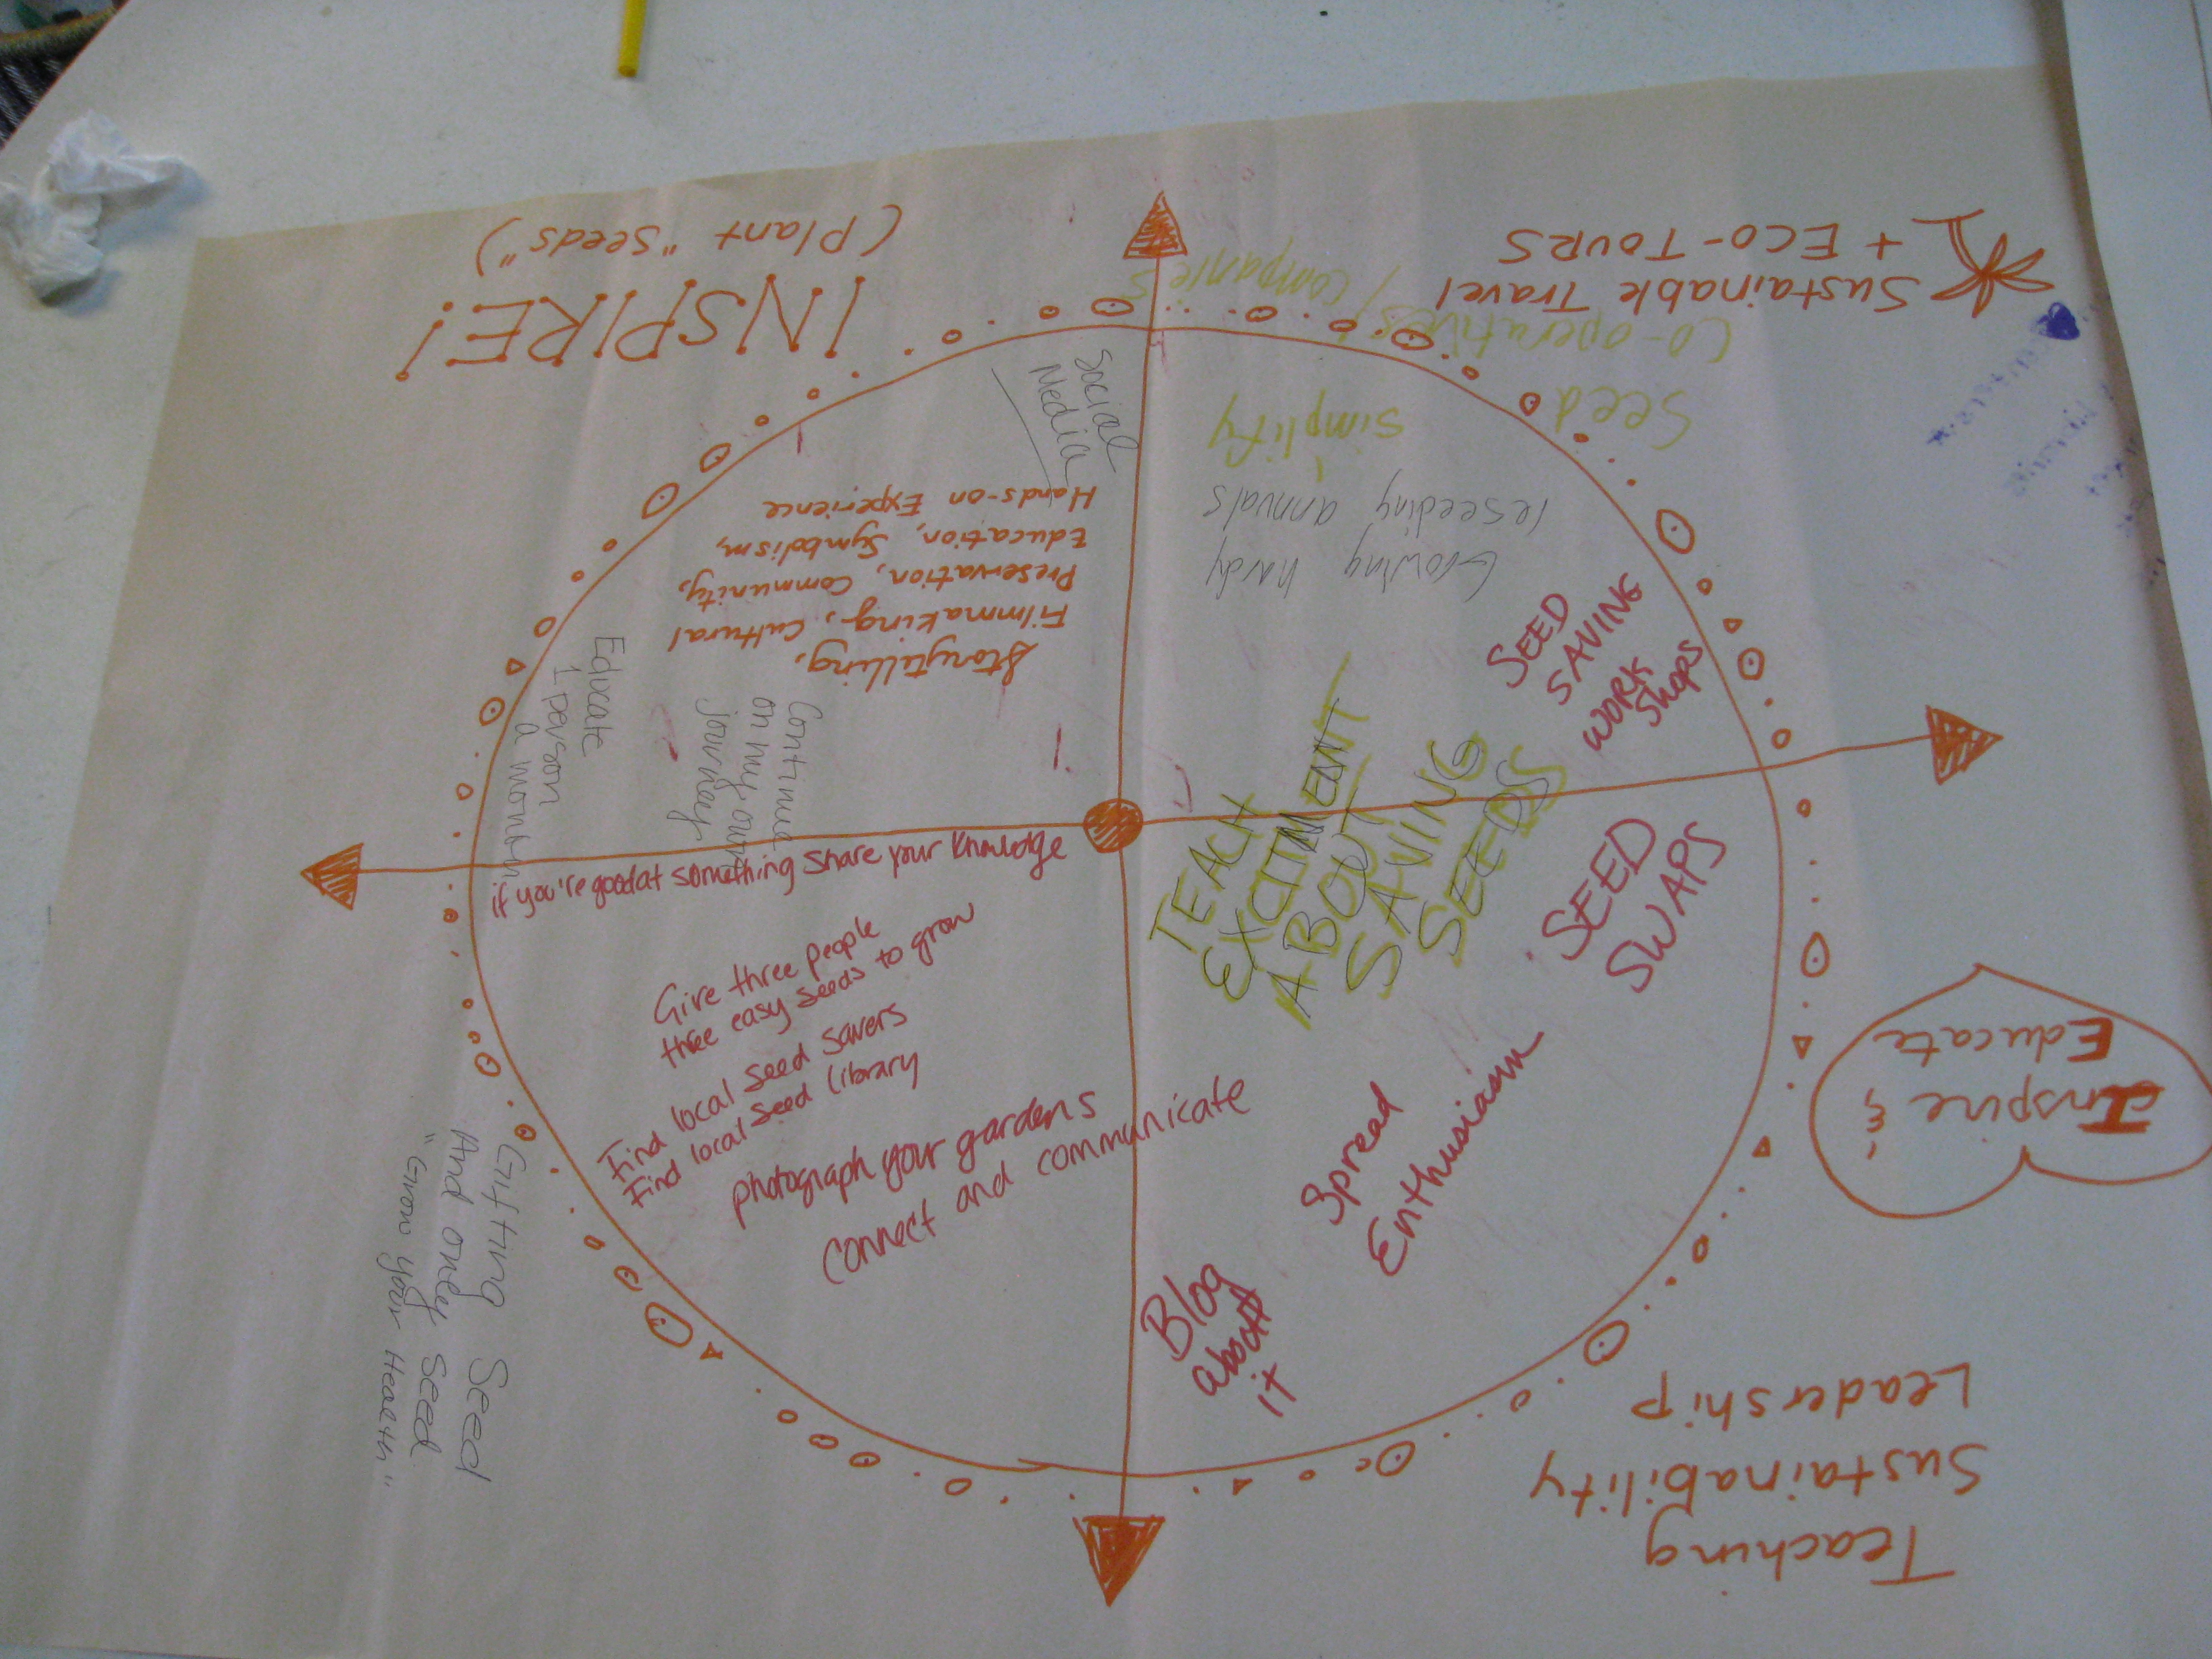 INSPIRE!
(Plant "Seeds")
Sustainable Travel
+ ECO-TOURS
Seed
Co-operatives/
Companies
simplify
Growing hardy
reseeding annuals
Social
Media
Storytelling,
Filmmaking, Cultural
Preservation, Community,
Education, Symbolism,
Hands-on Experience
Educate
1 person
a month
Continue
on my own
journey
SEED
SAVING
WORK
SHOPS
TEACH
EXCITMENT
ABOUT
SAVING
SEEDS
SEED
SWAPS
if you're good at something share your knowledge
Give three people
three easy seeds to grow
Find local seed savers
Find local seed library
photograph your gardens
connect and communicate
Spread
Enthusiasm
Blog
about
it
Inspire &
Educate
Gifting Seed
And only seed
"Grow your Health"
Teaching
Sustainability
Leadership